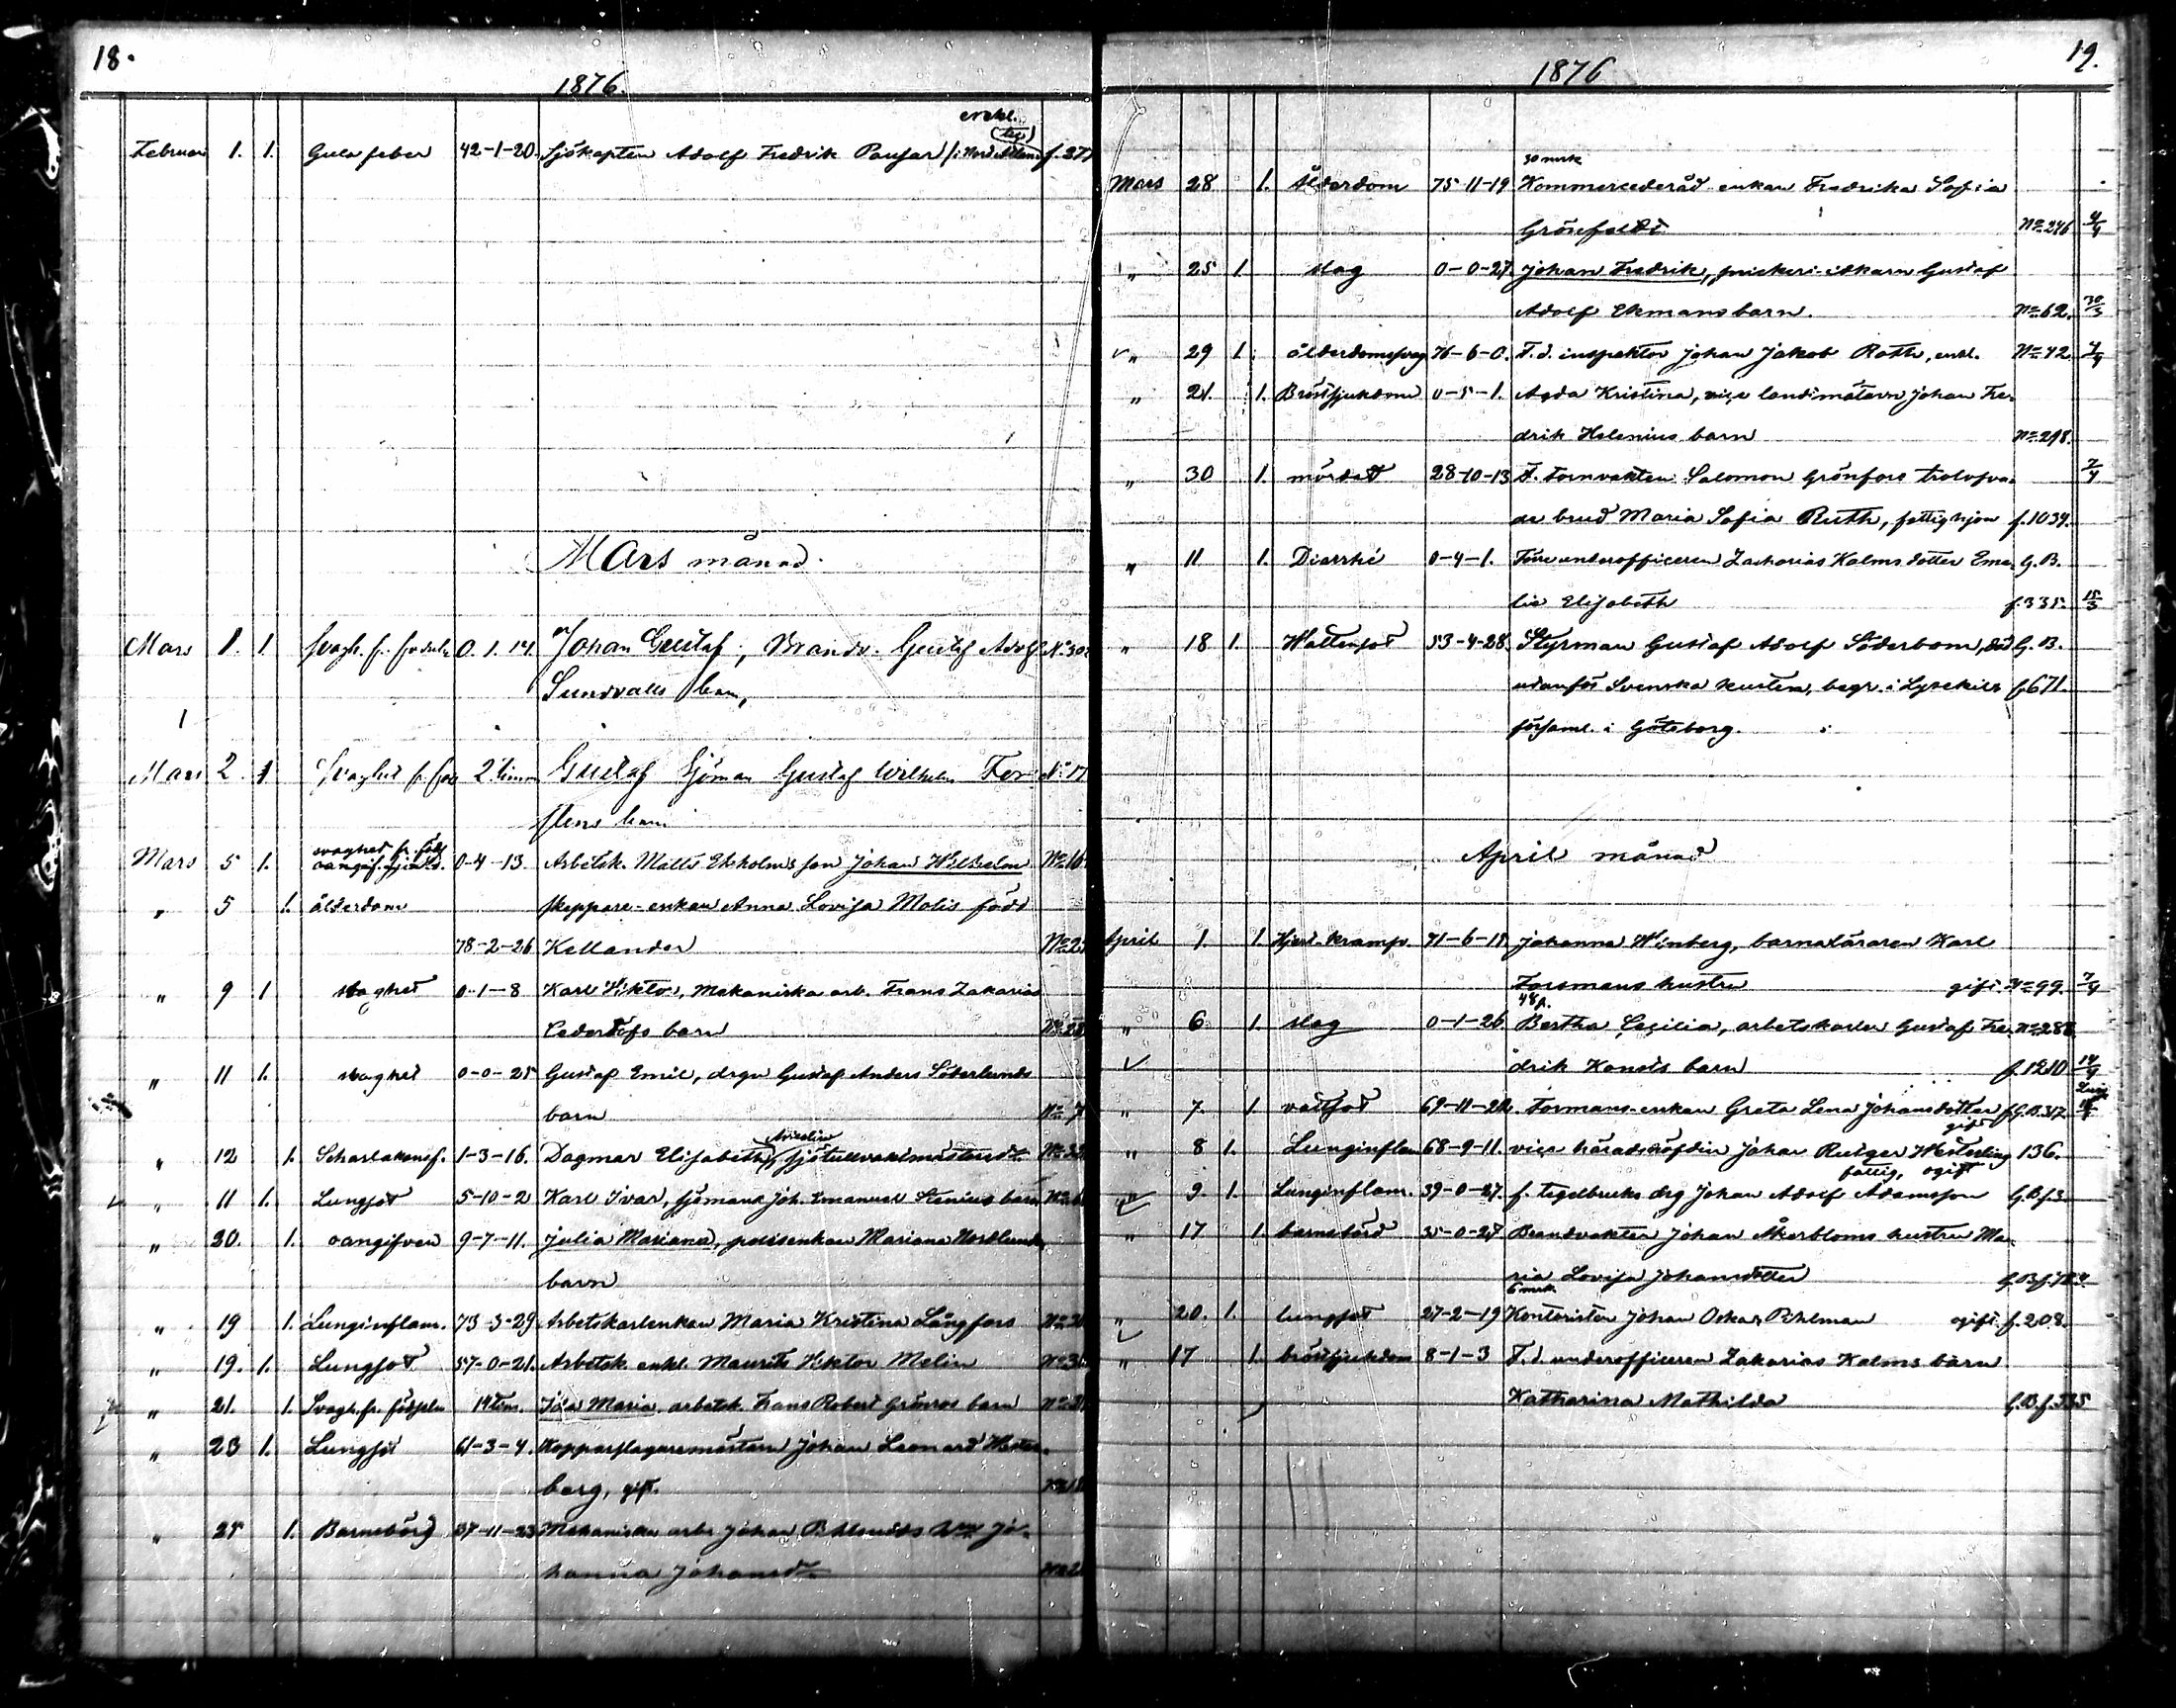 18.
1876.
enkl.
Februar 1. 1. Gula feber 42-1-20. Sjökapten Adolf Fredrik f. 27
Mars månad.
Mars 1. 1 0. 1. 14. Johan Gustaf, Brandv. Gustaf Adolf No 30
Sundvalls barn,
1
Mars 2. 1 Svaghet fr. 2 tim Gustaf Sjöman Gustaf Wilhelm No 17
barn
svaghet fr. föds
Mars 5 1. oangif. sjukd. 0-4-13. Arbetsk. Matts Ekholms son Johan Wilhelm No 16
" 5 1. ålderdom skeppare-enkan Anna Lovisa Molis född
78-2-26 Kellander No 2
" 9 1 svaghet 0-1-8 Karl Viktor, Mekaniska arb. Frans Zakarias
barn No 28
" 11 1. svaghet 0-0-25 Gustaf Emil, drgn Gustaf Anders Söderlunds
barn No 7
" 12 1. Scharlakansf. 1-3-16. Dagmar Elisabeth,
" 11 1. Lungsot 5-10-2 Karl Ivar, sjömans Joh. Emanuel Stenius barn No 6
" 20. 1. oangifven 9-7-11. Julia Mariana, Mariana Nordlunds
barn
" 19 1. Lunginflam. 73-3-29 Arbetskarlenkan Maria Kristina Långfors No 2
" 19. 1. Lungsot 57-0-21. Arbetsk. enkl. Maurits Viktor Melin No 3
" 21. 1. Svagh. fr. födseln 14 tim. Ida Maria, arbetsk. Frans Robert Grönros barn No 2
" 23 1. Lungsot 61-3-4. Kopparslagaremästarn Johan Leonard Wester-
berg, gift. No 18
" 25 1. Barnsbörd 37-11-23 Mekaniska arb. Johan Jo-
hanna Johansdr No 2
19.
1876
30 mrk
Mars 28 1. Ålderdom 75-11-19 Kommerceråd-enkan Fredrika Sofia
No 246 4/4
" 25 1. slag 0-0-27. Johan Fredrik, Gustaf
Adolf Ekmans barn. No 62. 30/3
" 29 1. ålderdomssvag 76-6-0. F.d. inspektor Johan Jakob Roth, enkl. No 42
" 21. 1. Bröstsjukdom 0-5-1. Agda Kristina, vice landtmätarn Johan Fre-
drik Helenius barn No 218.
" 30 1. mördad 28-10-13 F. tornvakten Salomon Grönfors trolofva-
de brud Maria Sofia Ruth, fattighjon f. 1034. 7/4
" 11 1. Diarrhé 0-4-1. Förre underofficeren Zacharias Kalms dotter Eme- G.B.
lie Elisabeth f. 335. 15/3
" 18 1. Wattusot 53-4-28. Styrman Gustaf Adolf Söderbom, död G.B.
utanför Svenska kusten, begr. i Lysekils f. 671.
församl. i Göteborg.
April månad
April 1. 1. Hjert-kramp. 71-6-18 Johanna Winberg, barnaläraren Karl
Forsmans hustru gift. No 99. 7/4
48 p.
" 6 1. slag 0-1-26 Bertha Cecilia, arbetskarlen Gustaf Fre- No 288
drik barn f. 1210 14/4
" 7. 1. vattsot Formans-enkan Greta Lena Johansdotter f.G.B. 317
" 8 1. Lunginflam 68-9-11. vice häradshöfdin Johan Rutger Westerling 136.
fattig, ogift
" 9. 1. Lunginflam. 39-0-27. f. tegelbruks drg Johan Adolf Adamsson G.B. f. 3
" 17 1. barnsbörd 35-0-27 Brandvakten Johan Åkerbloms hustru Ma-
ria Lovisa Johansdotter
6 mrk.
" 20. 1. lungsot 27-2-19 Kontoristen Johan Oskar Pihlman ogift f. 208.
" 17 1. bröstsjukdom 8-1-3 F.d. underofficeren Zakarias Kalms barn
Katharina Mathilda G.B. f. 335